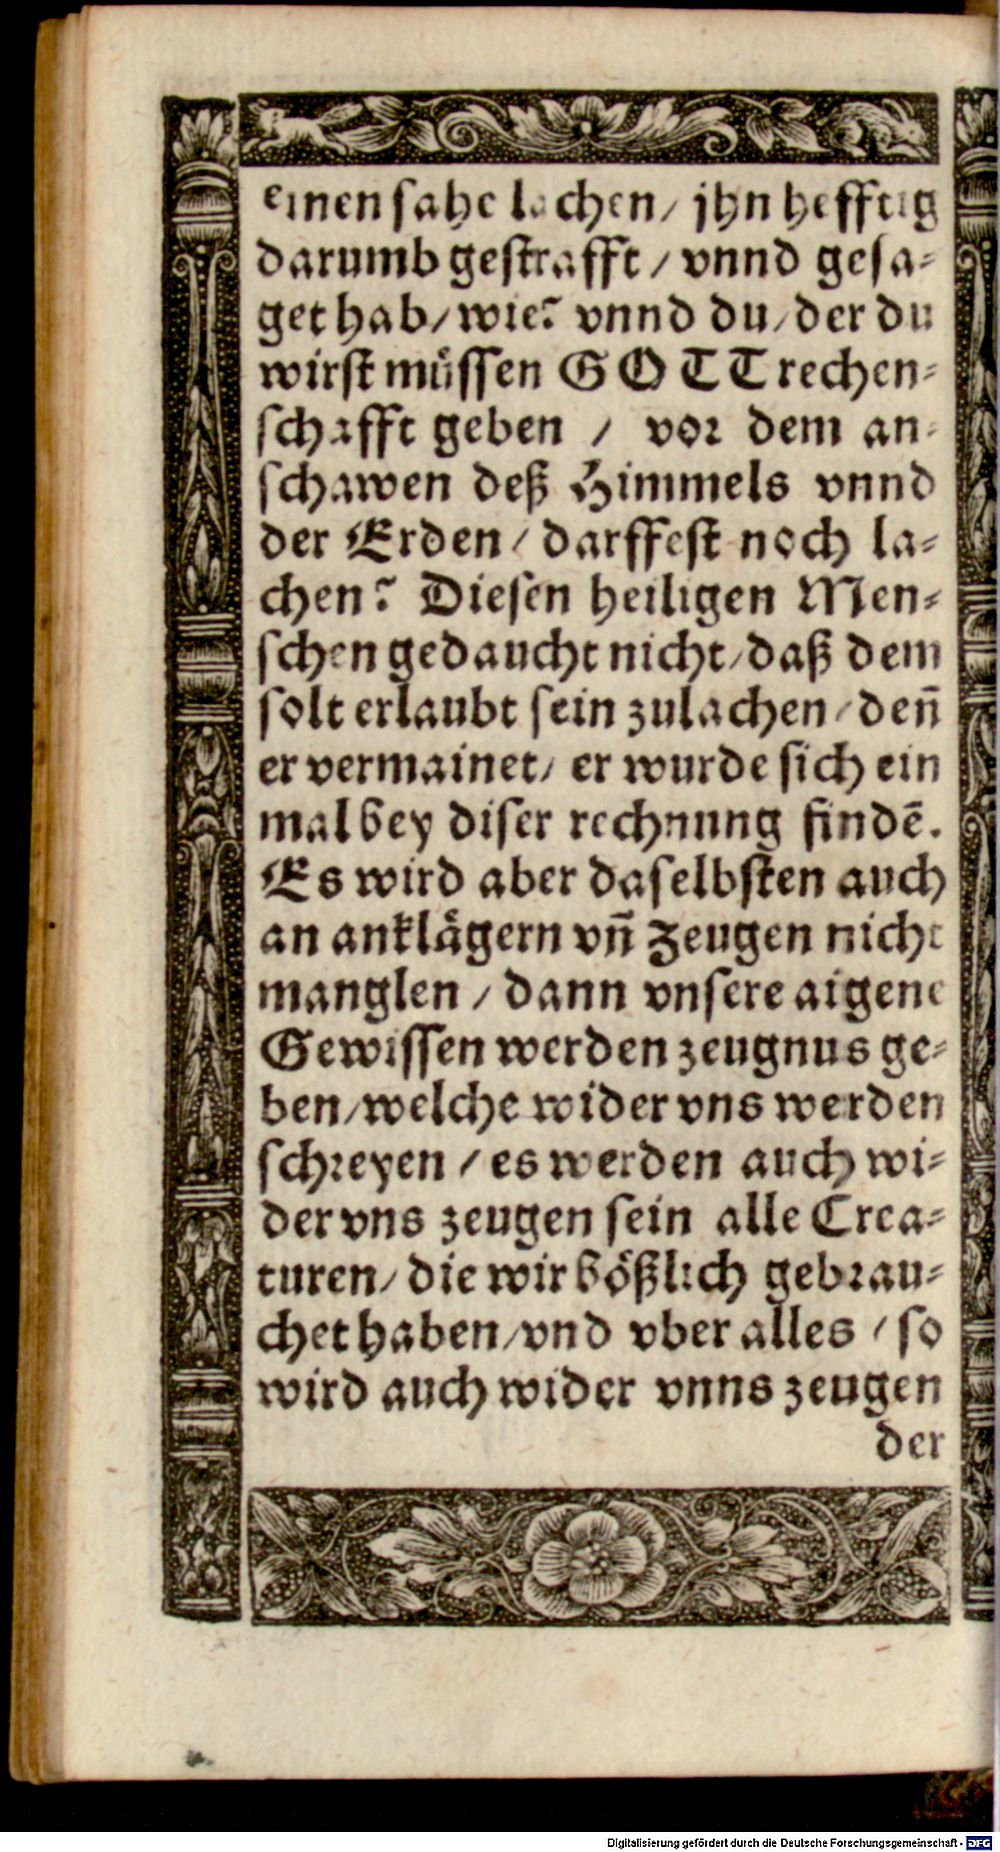 einen sahe lachen / jhn hefftig
darumb gestrafft / vnnd gesa-
get hab / wie? vnnd du / der du
wirst müssen GOTT rechen-
schafft geben / vor dem an-
schawen deß Himmels vnnd
der Erden / darffest noch la-
chen? Diesen heiligen Men-
schen gedaucht nicht / daß dem
solt erlaubt sein zulachen / deñ
er vermainet / er wurde sich ein
mal bey diser rechnung findẽ.
Es wird aber daselbsten auch
an anklägern vñ Zeugen nicht
manglen / dann vnsere aigene
Gewissen werden zeugnus ge-
ben / welche wider vns werden
schreyen / es werden auch wi-
der vns zeugen sein alle Crea-
turen / die wir bößlich gebrau-
chet haben / vnd vber alles / so
wird auch wider vnns zeugen
der
Digitalisierung gefördert durch die Deutsche Forschungsgemeinschaft - DFG